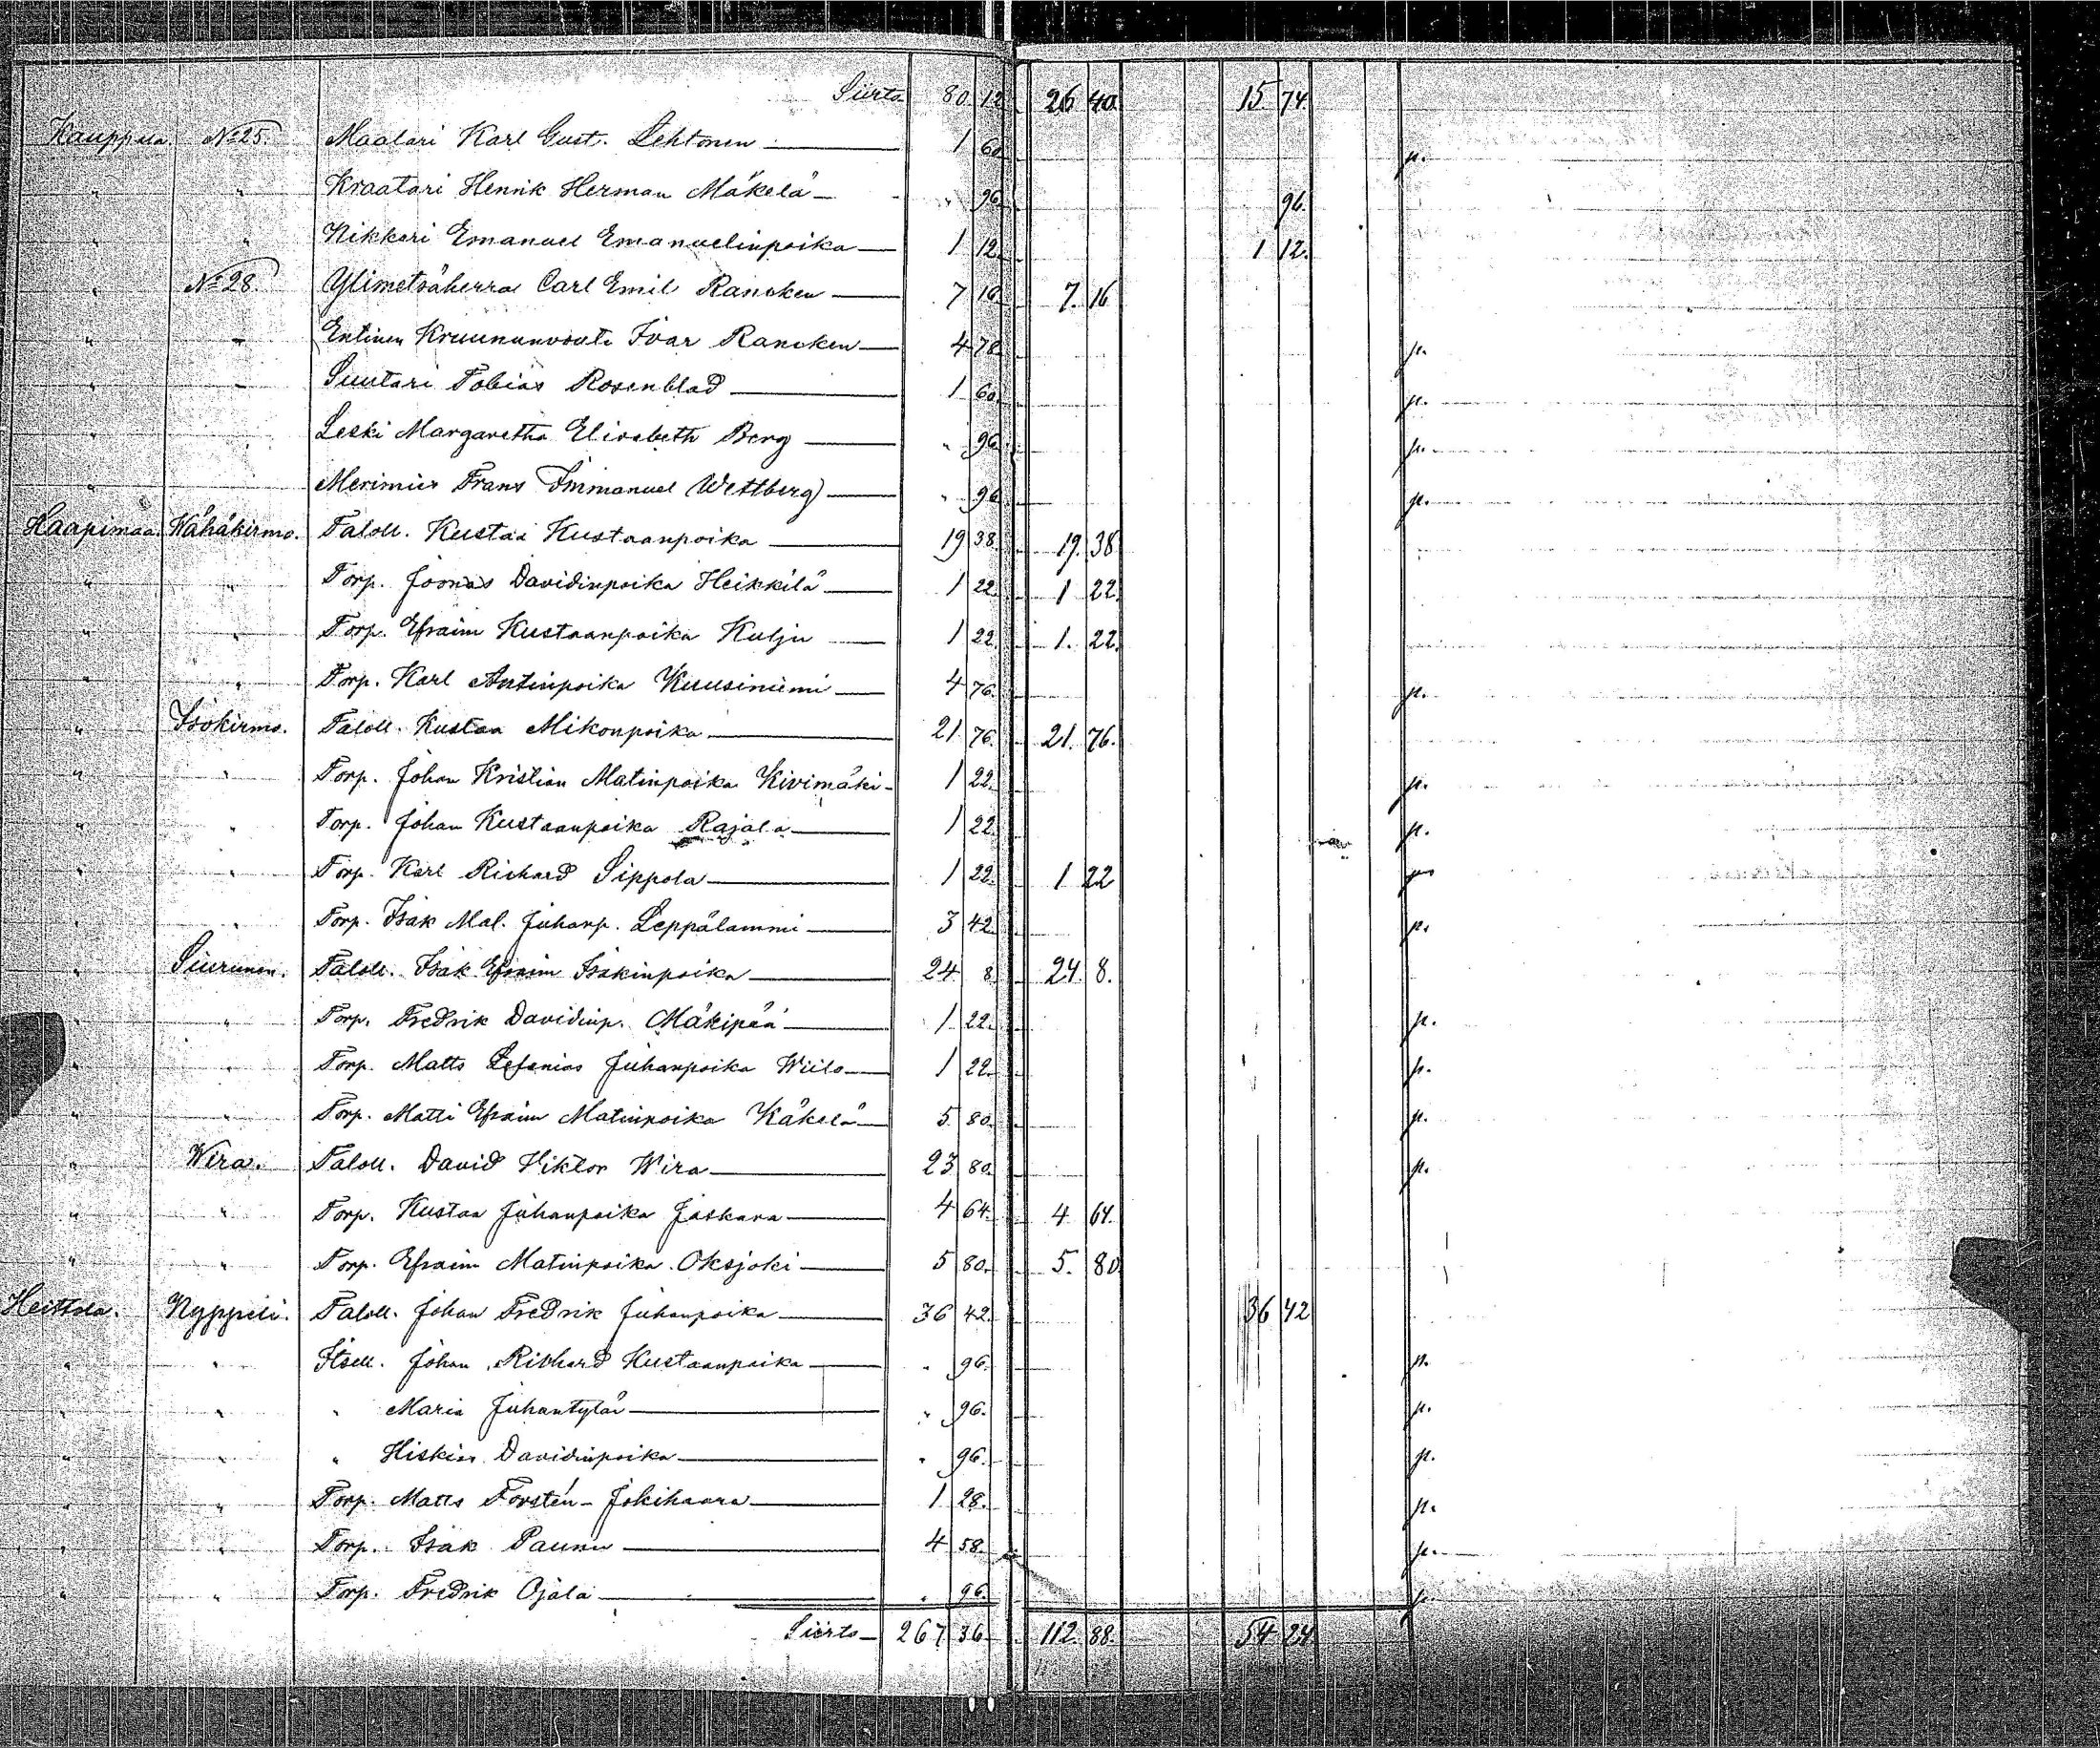 Siirto 80 12 26 40. 15 74.
Kauppila. No 25. Maalari Karl Gust. Lehtonen 1 60 p.
" " Kraatari Henrik Herman Mäkelä " 96 96.
" " Nikkari Emanuel Emanuelinpoika 1 12 1 12.
" No 28. Ylimetsäherra Carl Emil Rancken 7 16 7. 16
" " Entinen Kruununvouti Ivar Rancken 4 78 p.
" " Suutari Tobias Rosenblad 1 60. p.
" " Leski Margaretha Elisabeth Berg " 96 p.
" Merimies Frans Immanuel Wettberg " 96 p.
Haapimaa. Vähäkirmo. Taloll. Kustaa Kustaanpoika 19 38. 19. 38
" " Torp. Joonas Davidinpoika Heikkilä 1 22. 1 22.
" " Torp. Efraim Kustaanpoika Kulju 1 22. 1. 22.
" " Torp. Karl Antinpoika Kuusiniemi 4 76. p.
" Isokirmo. Taloll. Kustaa Mikonpoika 21. 76. 21. 76.
" " Torp. Johan Kristian Matinpoika Kivimäki 1 22. p.
" " Torp. Johan Kustaanpoika Rajala 1 22. p.
" " Torp. Karl Richard Sippola 1 22. 1 22
" " Torp. Isak Mal. Juhanp. Leppälammi 3 42. p.
" Siurunen. Taloll. Isak Efraim Isakinpoika 24. 8 24. 8.
" " Torp. Fredrik Davidinp. Mäkipää 1 22. p.
" " Torp. Matts Juhanpoika Wiilo 1 22. p.
" " Torp. Matti Efraim Matinpoika Käkelä 5. 80. p.
" Wira. Taloll. David Viktor Wira 23 80. p.
" " Torp. Kustaa Juhanpoika Jaskara 4 64. 4 64.
" " Torp. Efraim Matinpoika Oksjoki 5 80. 5. 80.
Heittola. Nyppeli. Taloll. Johan Fredrik Juhanpoika 36 42. 36 42
" " Itsell. Johan Richard Kustaanpoika " 96. p.
" " " Maria Juhantytär " 96. p.
" " " Hiskias Davidinpoika " 96. p.
" " Torp. Matts Forstén-Jokihaara 1 28. p.
" " Torp. Isak Paunu 4 58. p.
" " Torp. Fredrik Ojala " 96. p.
Siirto 267 36 112. 88. 54 24